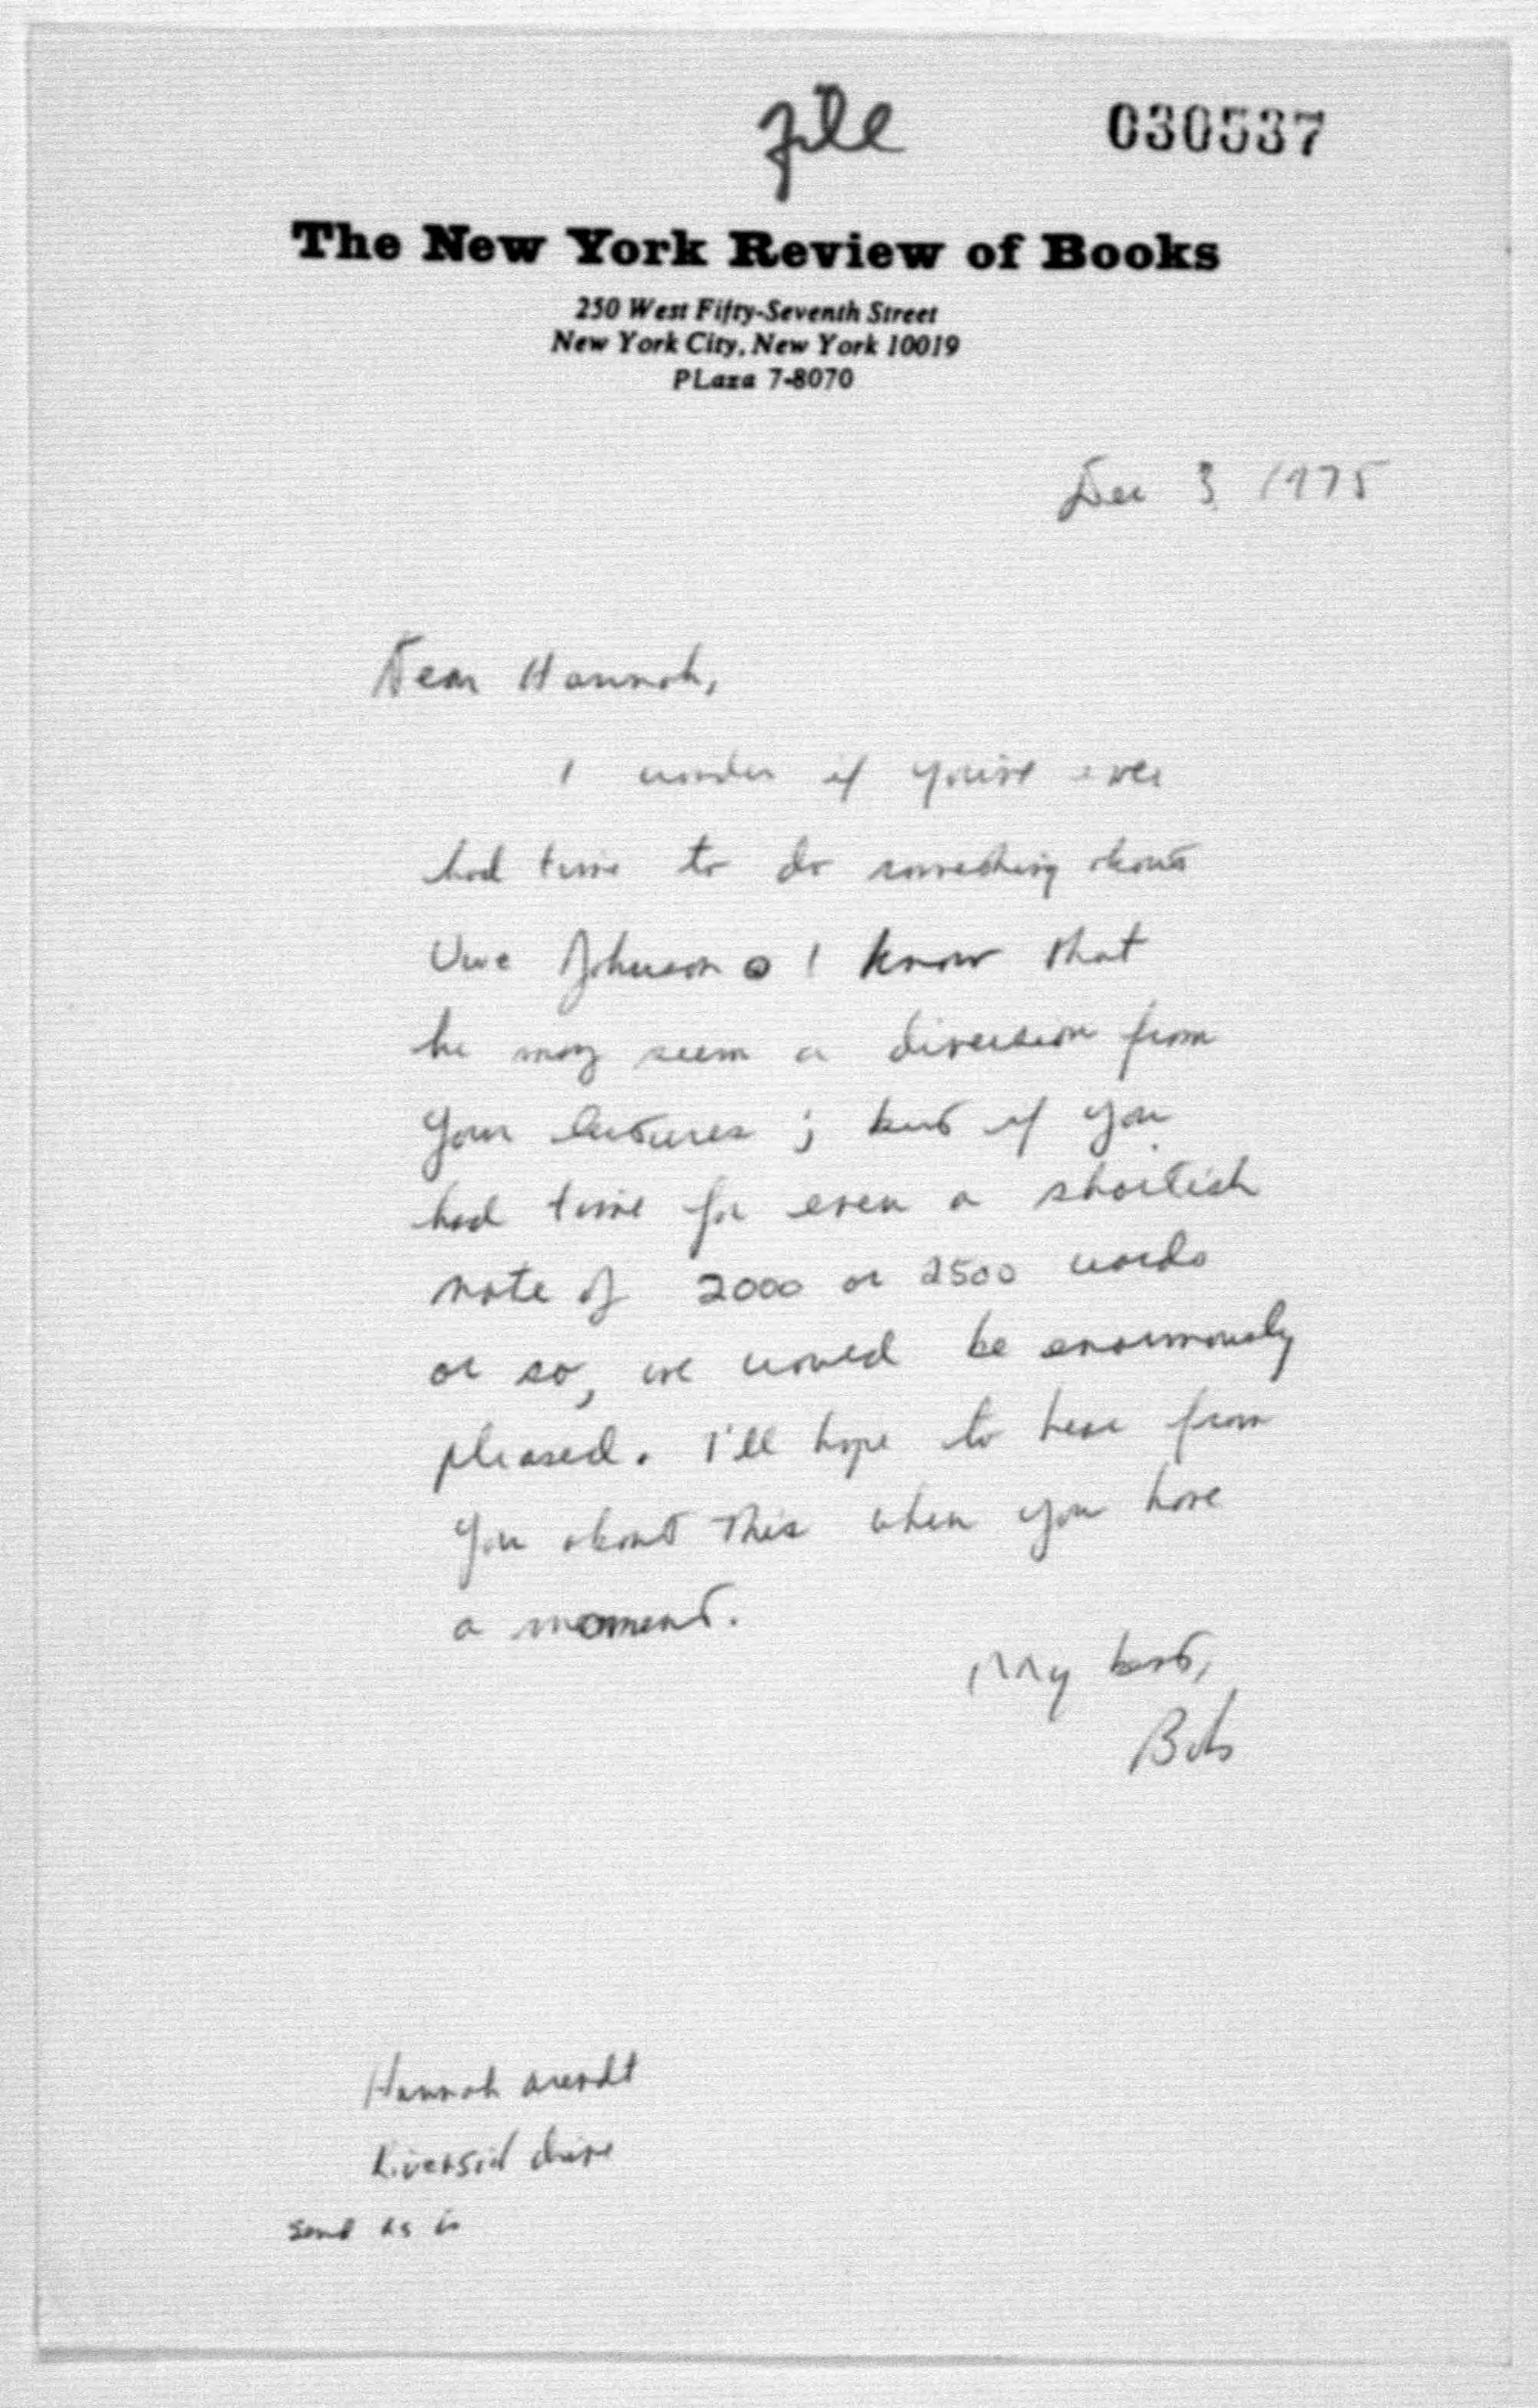 file
030537
The New York Review of Books
250 West Fifty-Seventh Street
New York City, New York 10019
PLaza 7-8070
Dec 3 1975
Dear Hannah,
I wonder if you've ever
had time to do something about
Uwe Johnson. I know that
he may seem a diversion from
your lectures; but if you
had time for even a shortish
note of 2000 or 2500 words
or so, we would be enormously
pleased. I'll hope to hear from
you about this when you have
a moment.
My best,
Bob
Hannah Arendt
Riverside drive
Send as is